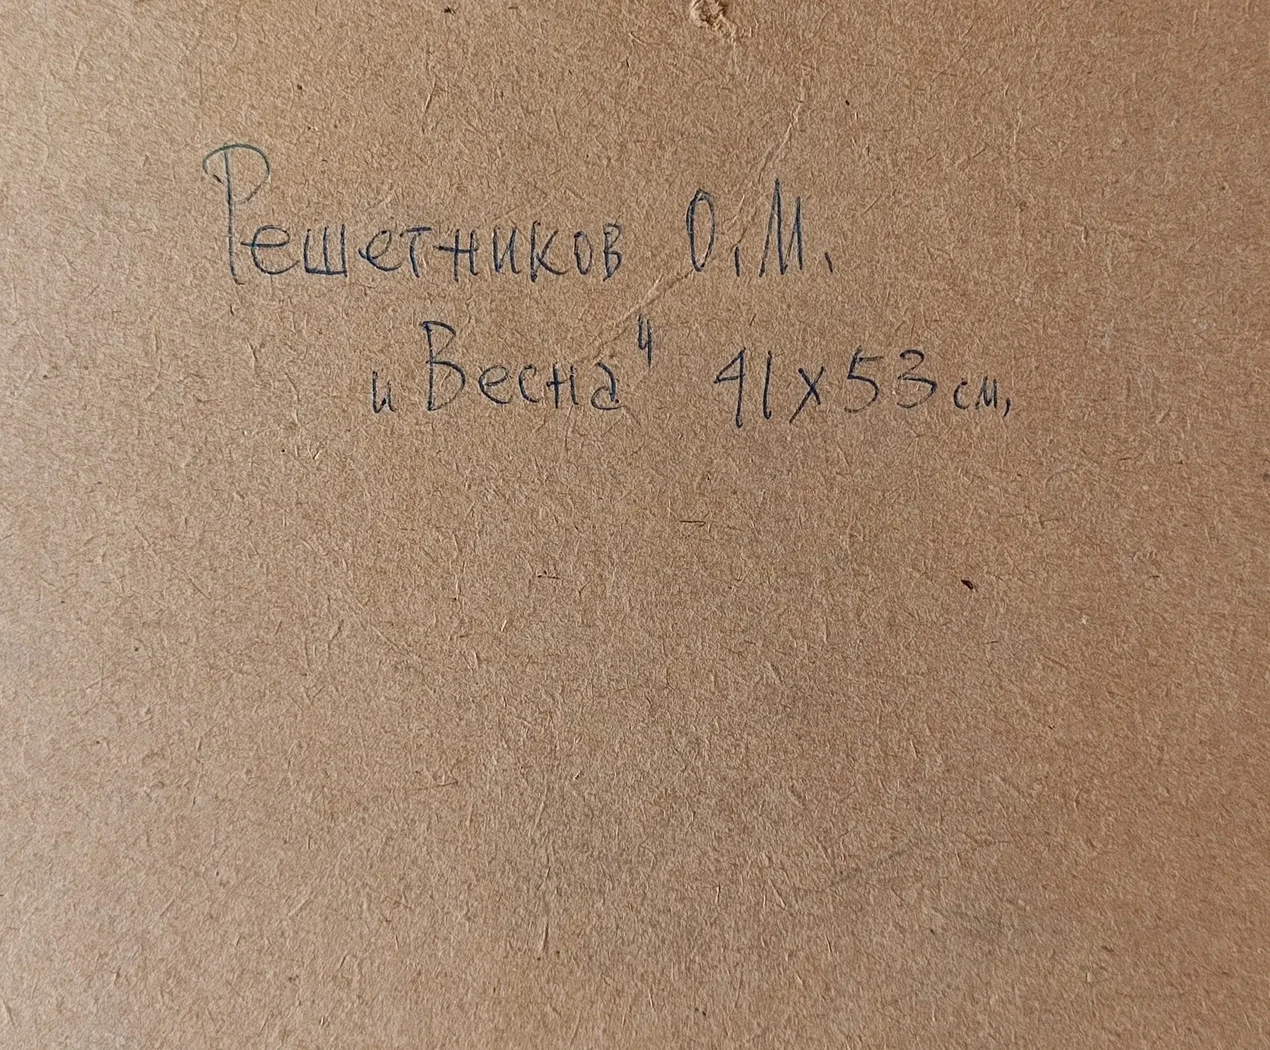 Решетников О.М.
„Весна" 41х53 см.